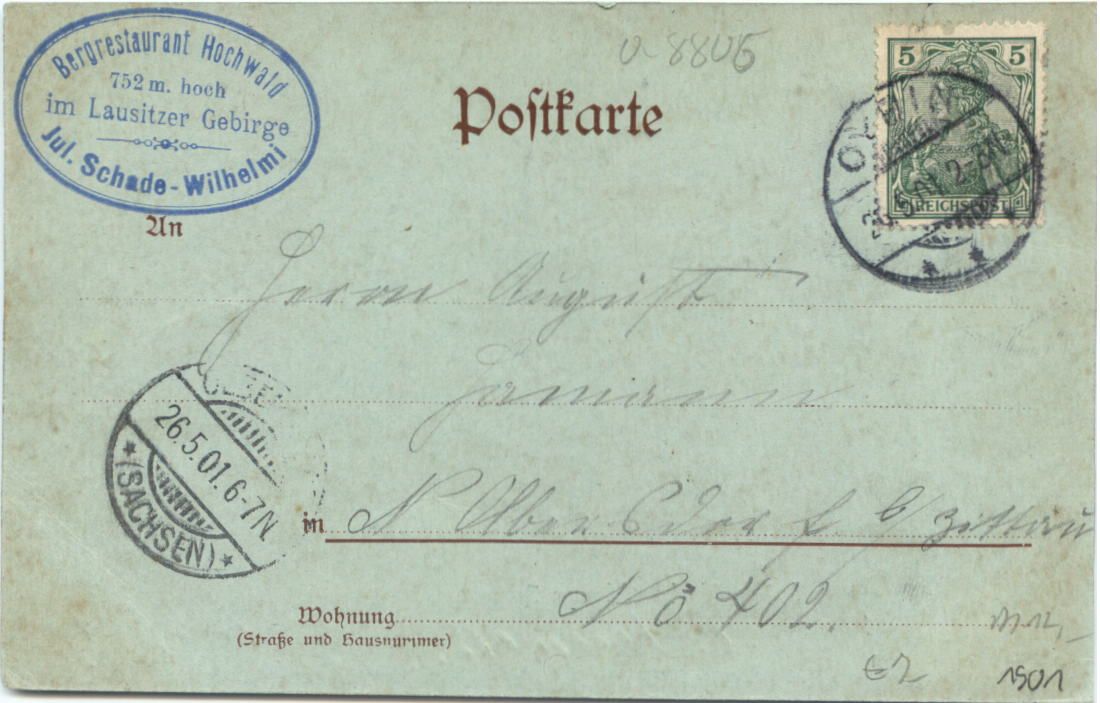 Bergrestaurant Hochwald
752 m. hoch
im Lausitzer Gebirge
Jul. Schade-Wilhelmi
Postkarte
5 5
REICHSPOST
An
Herrn August
Hamann
26.5.01. 6-7N
* (SACHSEN) *
in N Olbersdorf b Zittau
Wohnung No 402.
(Straße und Hausnummer)
1901